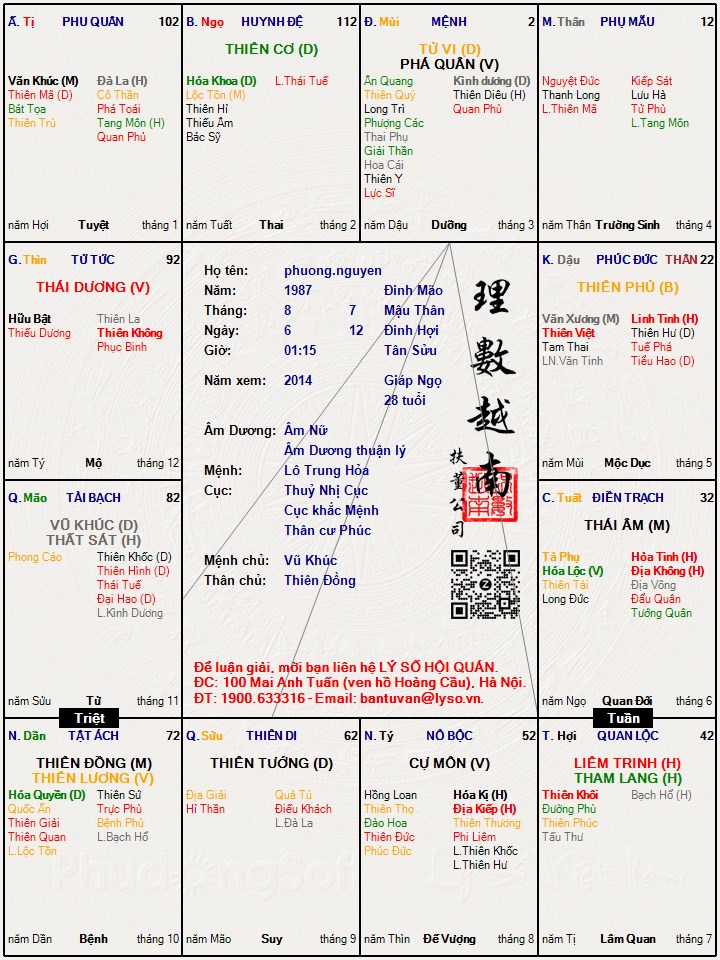 Ấ. Tị PHU QUÂN 102
Văn Khúc (M) Đà La (H)
Thiên Mã (D) Cô Thần
Bát Tọa Phá Toái
Thiên Trù Tang Môn (H)
Quan Phủ
năm Hợi Tuyệt tháng 1
B. Ngọ HUYNH ĐỆ 112
THIÊN CƠ (D)
Hóa Khoa (D) L.Thái Tuế
Lộc Tồn (M)
Thiên Hỉ
Thiếu Âm
Bác Sỹ
năm Tuất Thai tháng 2
Đ. Mùi MỆNH 2
TỬ VI (D)
PHÁ QUÂN (V)
Ân Quang Kình dương (D)
Thiên Quý Thiên Diêu (H)
Long Trì Quan Phù
Phượng Các
Thai Phụ
Giải Thần
Hoa Cái
Thiên Y
Lực Sĩ
năm Dậu Dưỡng tháng 3
M. Thân PHỤ MẪU 12
Nguyệt Đức Kiếp Sát
Thanh Long Lưu Hà
L.Thiên Mã Tử Phù
L.Tang Môn
năm Thân Trường Sinh tháng 4
G. Thìn TỬ TỨC 92
THÁI DƯƠNG (V)
Hữu Bật Thiên La
Thiếu Dương Thiên Không
Phục Binh
năm Tý Mộ tháng 12
Họ tên: phuong.nguyen
Năm: 1987 Đinh Mão
Tháng: 8 7 Mậu Thân
Ngày: 6 12 Đinh Hợi
Giờ: 01:15 Tân Sửu
Năm xem: 2014 Giáp Ngọ
28 tuổi
Âm Dương: Âm Nữ
Âm Dương thuận lý
Mệnh: Lô Trung Hỏa
Cục: Thuỷ Nhị Cục
Cục khắc Mệnh
Thân cư Phúc
Mệnh chủ: Vũ Khúc
Thân chủ: Thiên Đồng
理數越南
扶董公司
Để luận giải, mời bạn liên hệ LÝ SỐ HỘI QUÁN.
ĐC: 100 Mai Anh Tuấn (ven hồ Hoàng Cầu), Hà Nội.
ĐT: 1900.633316 - Email: bantuvan@lyso.vn.
K. Dậu PHÚC ĐỨC THÂN 22
THIÊN PHỦ (B)
Văn Xương (M) Linh Tinh (H)
Thiên Việt Thiên Hư (D)
Tam Thai Tuế Phá
LN.Văn Tinh Tiểu Hao (D)
năm Mùi Mộc Dục tháng 5
Q. Mão TÀI BẠCH 82
VŨ KHÚC (D)
THẤT SÁT (H)
Phong Cáo Thiên Khốc (D)
Thiên Hình (D)
Thái Tuế
Đại Hao (D)
L.Kình Dương
năm Sửu Tử tháng 11
Triệt
C. Tuất ĐIỀN TRẠCH 32
THÁI ÂM (M)
Tả Phụ Hỏa Tinh (H)
Hóa Lộc (V) Địa Không (H)
Thiên Tài Địa Võng
Long Đức Đẩu Quân
Tướng Quân
năm Ngọ Quan Đới tháng 6
Tuần
N. Dần TẬT ÁCH 72
THIÊN ĐỒNG (M)
THIÊN LƯƠNG (V)
Hóa Quyền (D) Thiên Sứ
Quốc Ấn Trực Phù
Thiên Giải Bệnh Phù
Thiên Quan L.Bạch Hổ
L.Lộc Tồn
năm Dần Bệnh tháng 10
Q. Sửu THIÊN DI 62
THIÊN TƯỚNG (D)
Địa Giải Quả Tú
Hỉ Thần Điếu Khách
L.Đà La
năm Mão Suy tháng 9
N. Tý NÔ BỘC 52
CỰ MÔN (V)
Hồng Loan Hóa Kị (H)
Thiên Thọ Địa Kiếp (H)
Đào Hoa Thiên Thương
Thiên Đức Phi Liêm
Phúc Đức L.Thiên Khốc
L.Thiên Hư
năm Thìn Đế Vượng tháng 8
T. Hợi QUAN LỘC 42
LIÊM TRINH (H)
THAM LANG (H)
Thiên Khôi Bạch Hổ (H)
Đường Phù
Thiên Phúc
Tấu Thư
năm Tị Lâm Quan tháng 7